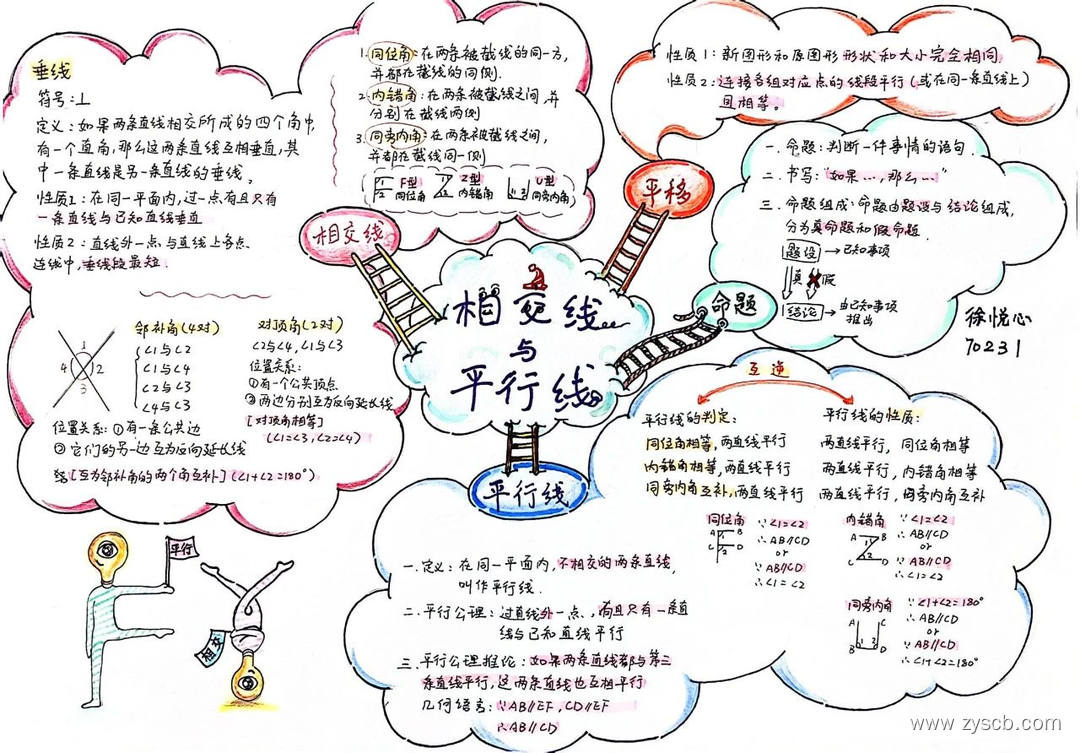 相交线
与
平行线
相交线
垂线
符号:⊥
定义:如果两条直线相交所成的四个角中,
有一个直角,那么这两条直线互相垂直,其
中一条直线是另一条直线的垂线。
性质1:在同一平面内,过一点有且只有
一条直线与已知直线垂直
性质2:直线外一点与直线上各点
连线中,垂线段最短.
1.同位角:在两条被截线的同一方,
并都在截线的同侧.
2.内错角:在两条被截线之间,并
分别在截线两侧
3.同旁内角:在两条被截线之间,
并都在截线同一侧
1
2
F型
同位角
1
2
Z型
内错角
1
2
U型
同旁内角
1
4
2
3
邻补角(4对)
∠1与∠2
∠1与∠4
∠2与∠3
∠4与∠3
对顶角(2对)
∠2与∠4,∠1与∠3
位置关系:
①有一个公共顶点
②两边分别互为反向延长线
[对顶角相等]
(∠1=∠3,∠2=∠4)
位置关系:①有一条公共边
②它们的另一边互为反向延长线
[互为邻补角的两个角互补](∠1+∠2=180°)
平移
性质1:新图形和原图形形状和大小完全相同
性质2:连接各组对应点的线段平行(或在同一条直线上)
且相等。
命题
一.命题:判断一件事情的语句.
二.书写:"如果...,那么..."
三.命题组成:命题由题设与结论组成,
分为真命题和假命题.
题设→已知事项
真
假
结论→由已知事项
推出
徐悦心
70231
平行线
互逆
平行线的判定:
同位角相等,两直线平行
内错角相等,两直线平行
同旁内角互补,两直线平行
平行线的性质:
两直线平行,同位角相等
两直线平行,内错角相等
两直线平行,同旁内角互补
同位角
A
B
C
D
1
2
∵∠1=∠2
∴AB∥CD
or
∵AB∥CD
∴∠1=∠2
内错角
A
B
C
D
1
2
∵∠1=∠2
∴AB∥CD
or
∵AB∥CD
∴∠1=∠2
同旁内角
A
C
B
D
1
2
∵∠1+∠2=180°
∴AB∥CD
or
∵AB∥CD
∴∠1+∠2=180°
一.定义:在同一平面内,不相交的两条直线,
叫作平行线.
二.平行公理:过直线外一点、有且只有一条直
线与已知直线平行
三.平行公理推论:如果两条直线都与第三
条直线平行,这两条直线也互相平行
几何语言:∵AB∥EF,CD∥EF
∴AB∥CD
平行
相交
www.zyscb.com